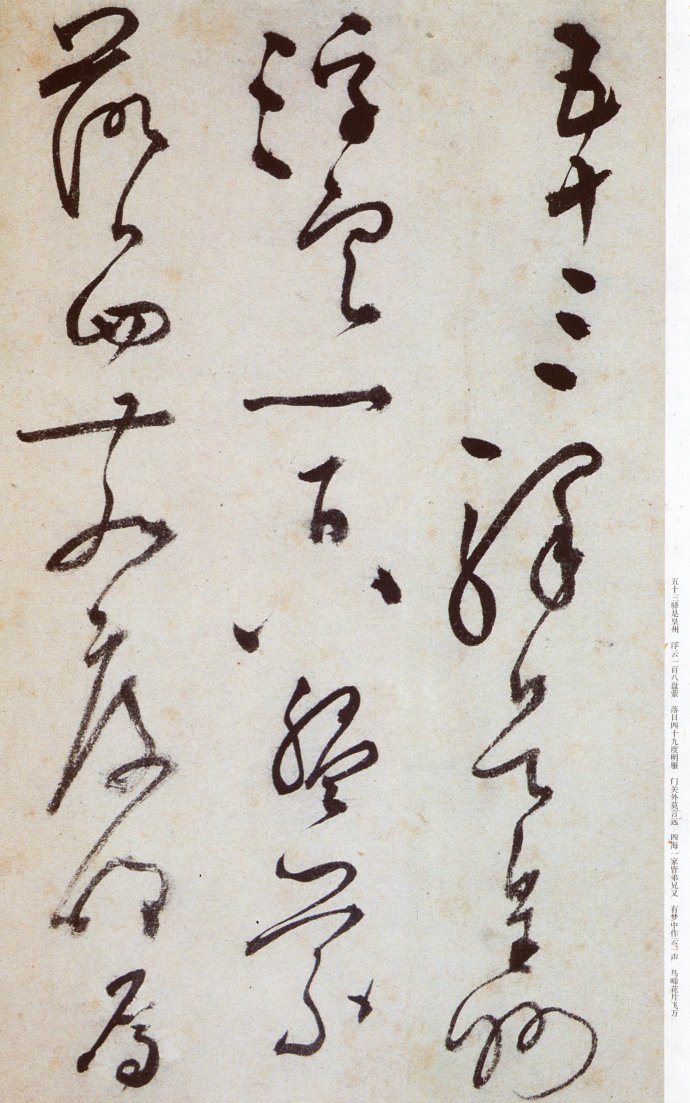 五十三驛是皇州
浮雲一百八盤縈
落日四十九度明鴈
五十三驿是皇州 浮云一百八盘萦 落日四十九度明雁 门关外莫言远 四海一家皆弟兄又 有梦中作云一声 鸟啼花片飞万